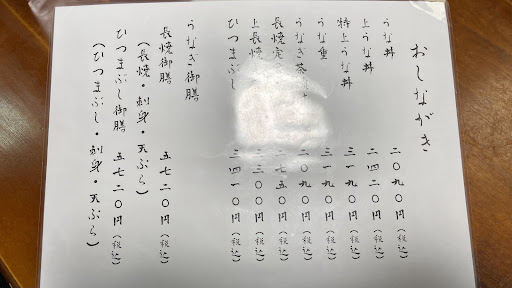 おしながき
うな丼 二〇九〇円(税込)
上うな丼 二四二〇円(税込)
特上うな丼 三一九〇円(税込)
うな重 三一九〇円(税込)
うなぎ茶 二〇九〇円(税込)
長焼定 七五〇円(税込)
上長焼 三〇〇円(税込)
ひつまぶし 四一〇円(税込)
うなぎ御膳
長焼御膳 五七二〇円(税込)
(長焼・刺身・天ぷら)
ひつまぶし御膳 五七二〇円(税込)
(ひつまぶし・刺身・天ぷら)